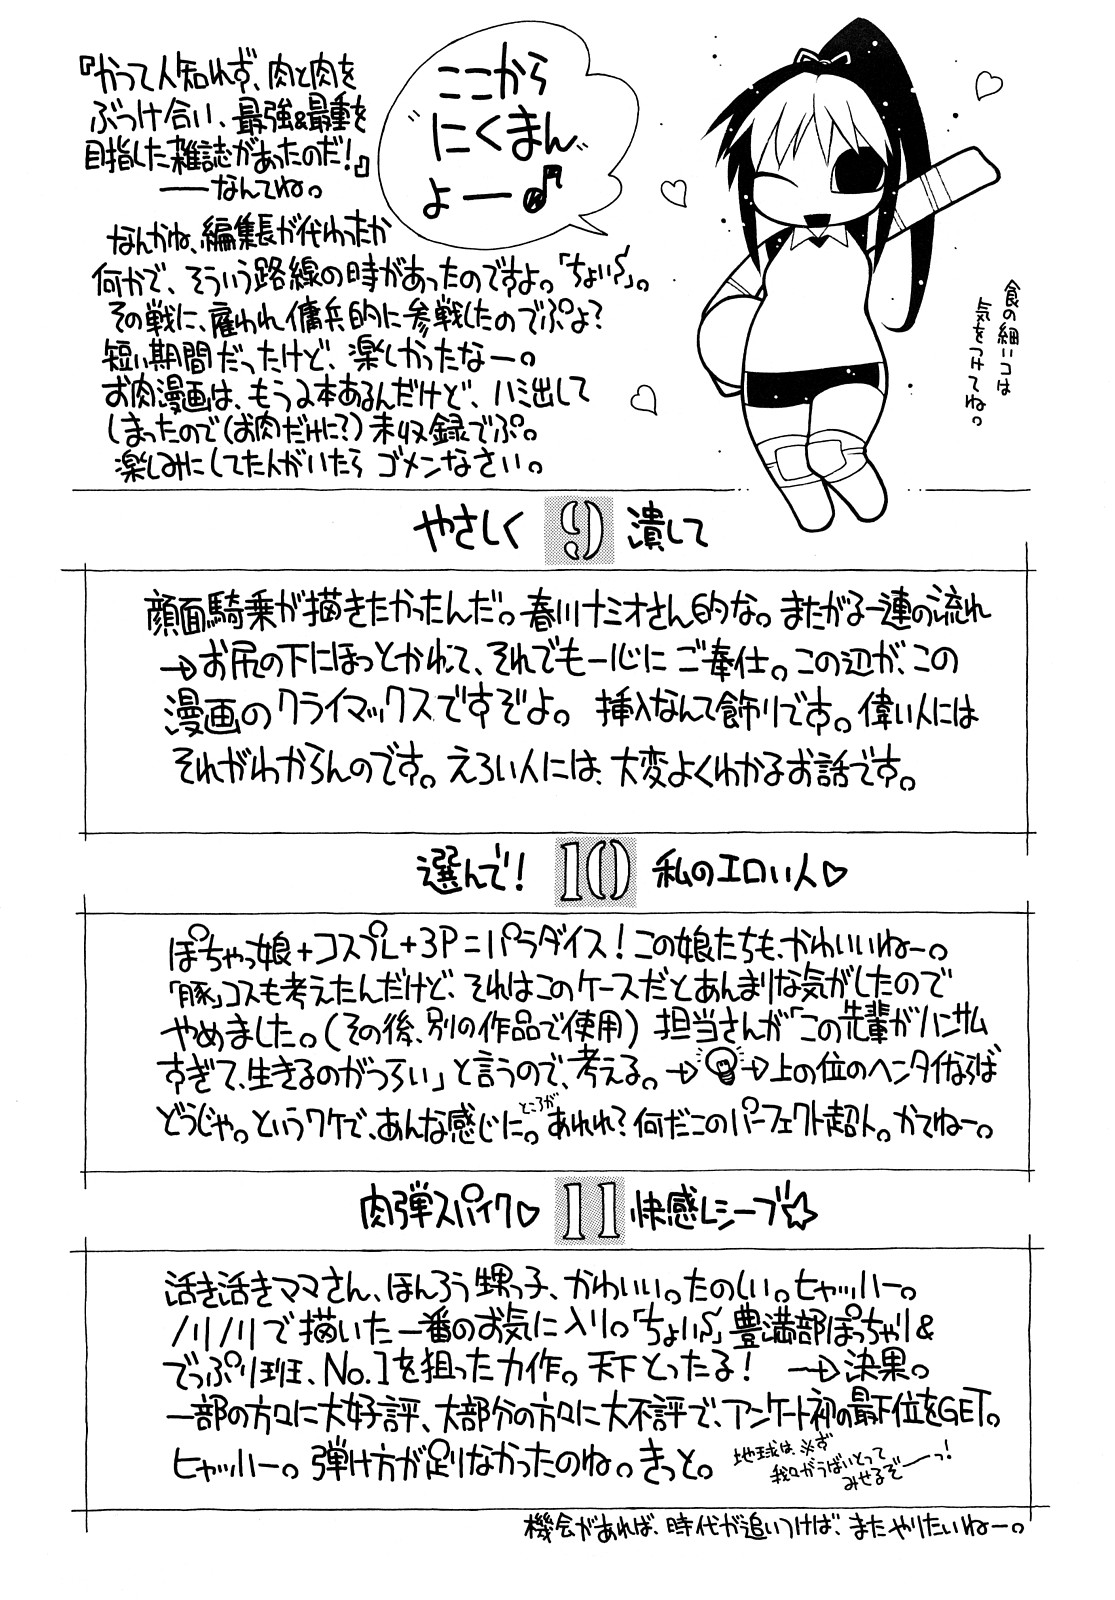 『かつて人知れず、肉と肉を
ぶつけ合い、最強&最重を
目指した雑誌があったのだ!』
──なんてね。
ここから
にくまん
よー♪
なんかね、編集長が代わったか
何かで、そういう路線の時があったのですよ。「ちょい〜」。
その戦に、雇われ傭兵的に参戦したのでぷよ?
短い期間だったけど、楽しかったなー。
お肉漫画は、もう2本あるんだけど、ハミ出して
しまったので(お肉だけに?)未収録でぷ。
楽しみにしてた人がいたら ゴメンなさい。
食の細いコは
気をつけてね。
やさしく 9 潰して
顔面騎乗が描きたかったんだ。春川ナミオさん的な。またがる一連の流れ
→お尻の下にほっとかれて、それでも一心にご奉仕。この辺が、この
漫画のクライマックスですぞよ。 挿入なんて飾りです。偉い人には
それがわからんのです。えろい人には、大変よくわかるお話です。
選んで! 10 私のエロい人♡
ぽちゃっ娘+コスプレ+3P=パラダイス!この娘たちも、かわいいねー。
「豚」コスも考えたんだけど、それはこのケースだとあんまりな気がしたので
やめました。(その後、別の作品で使用) 担当さんが「この先輩がハンサム
すぎて、生きるのがつらい」と言うので、考える。→💡→上の位のヘンタイならば
どうじゃ。というワケで、あんな感じに。ところがあれれ?何だこのパーフェクト超人。かてねー。
肉弾スパイク♡ 11 快感レシーブ☆
活き活きママさん、ほんろう甥っ子、かわいい。たのしい。ヒャッハー。
ノリノリで描いた一番のお気に入り。「ちょい〜」豊満部ぽっちゃり&
でっぷり班、No.1を狙った力作。天下とったる! ─→決果。
一部の方々に大好評、大部分の方々に大不評で、アンケート初の最下位をGET。
ヒャッハー。弾け方が足りなかったのね。きっと。
地球は、※ず
我々がうばいとって
みせるぞーっ!
機会があれば、時代が追いつけば、またやりたいねー。